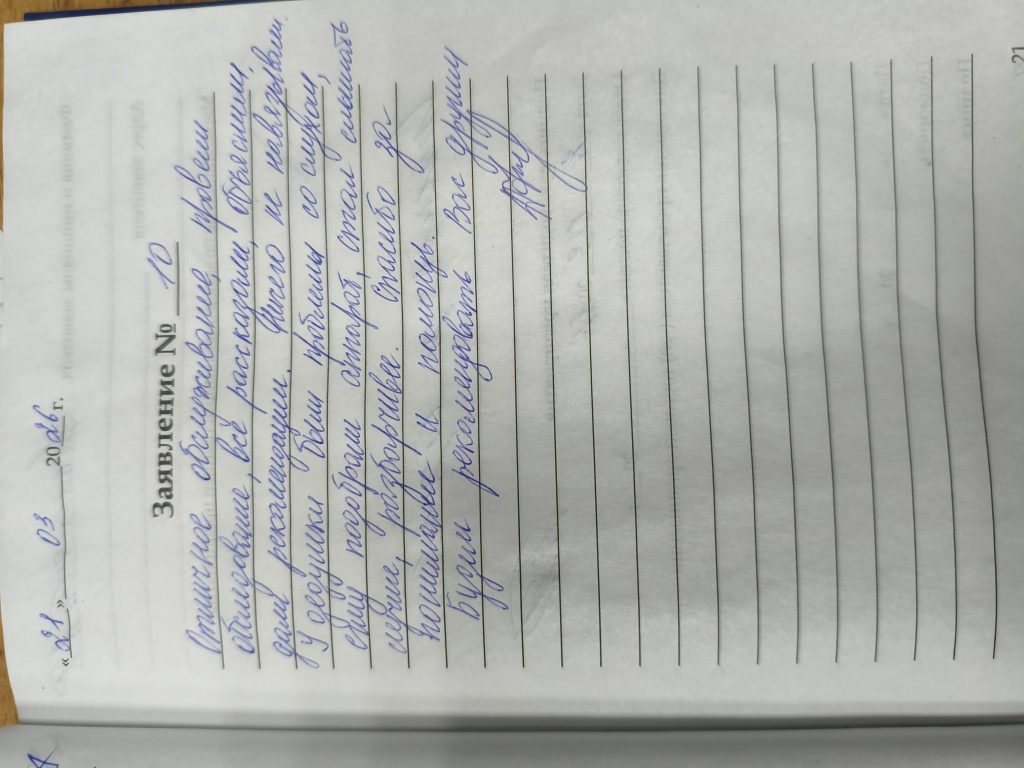 « 21 » 03 2026 г.
Заявление № 10
Отличное обслуживание, провели
обследование, всё рассказали, объяснили,
дали рекомендации. Ничего не навязывали.
У дедушки были проблемы со слухом,
ему подобрали аппарат, стал слышать
лучше, разборчивей. Спасибо за
понимание и помощь.
Будем рекомендовать Вас другим
21